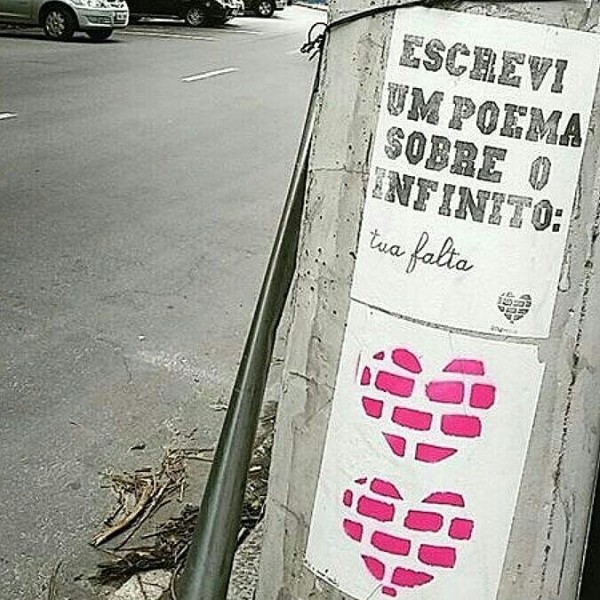 ESCREVI
UM POEMA
SOBRE O
INFINITO:
tua falta